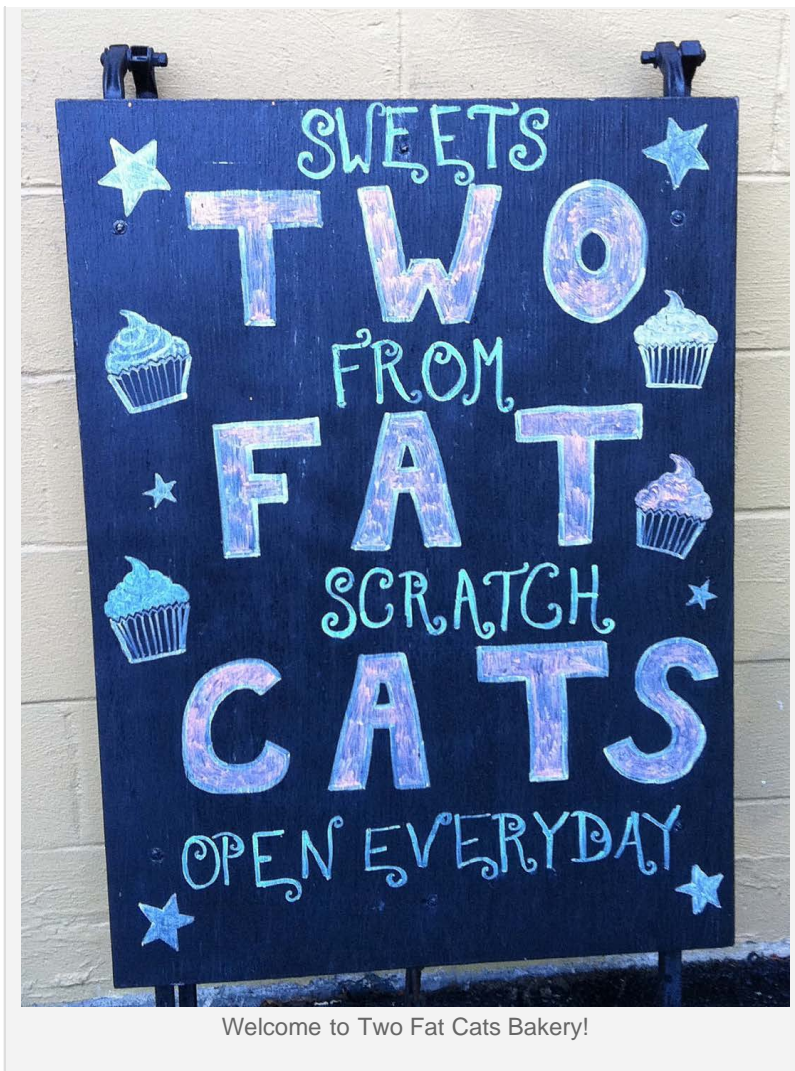 SWEETS
TWO
FROM
FAT
SCRATCH
CATS
OPEN EVERYDAY
Welcome to Two Fat Cats Bakery!